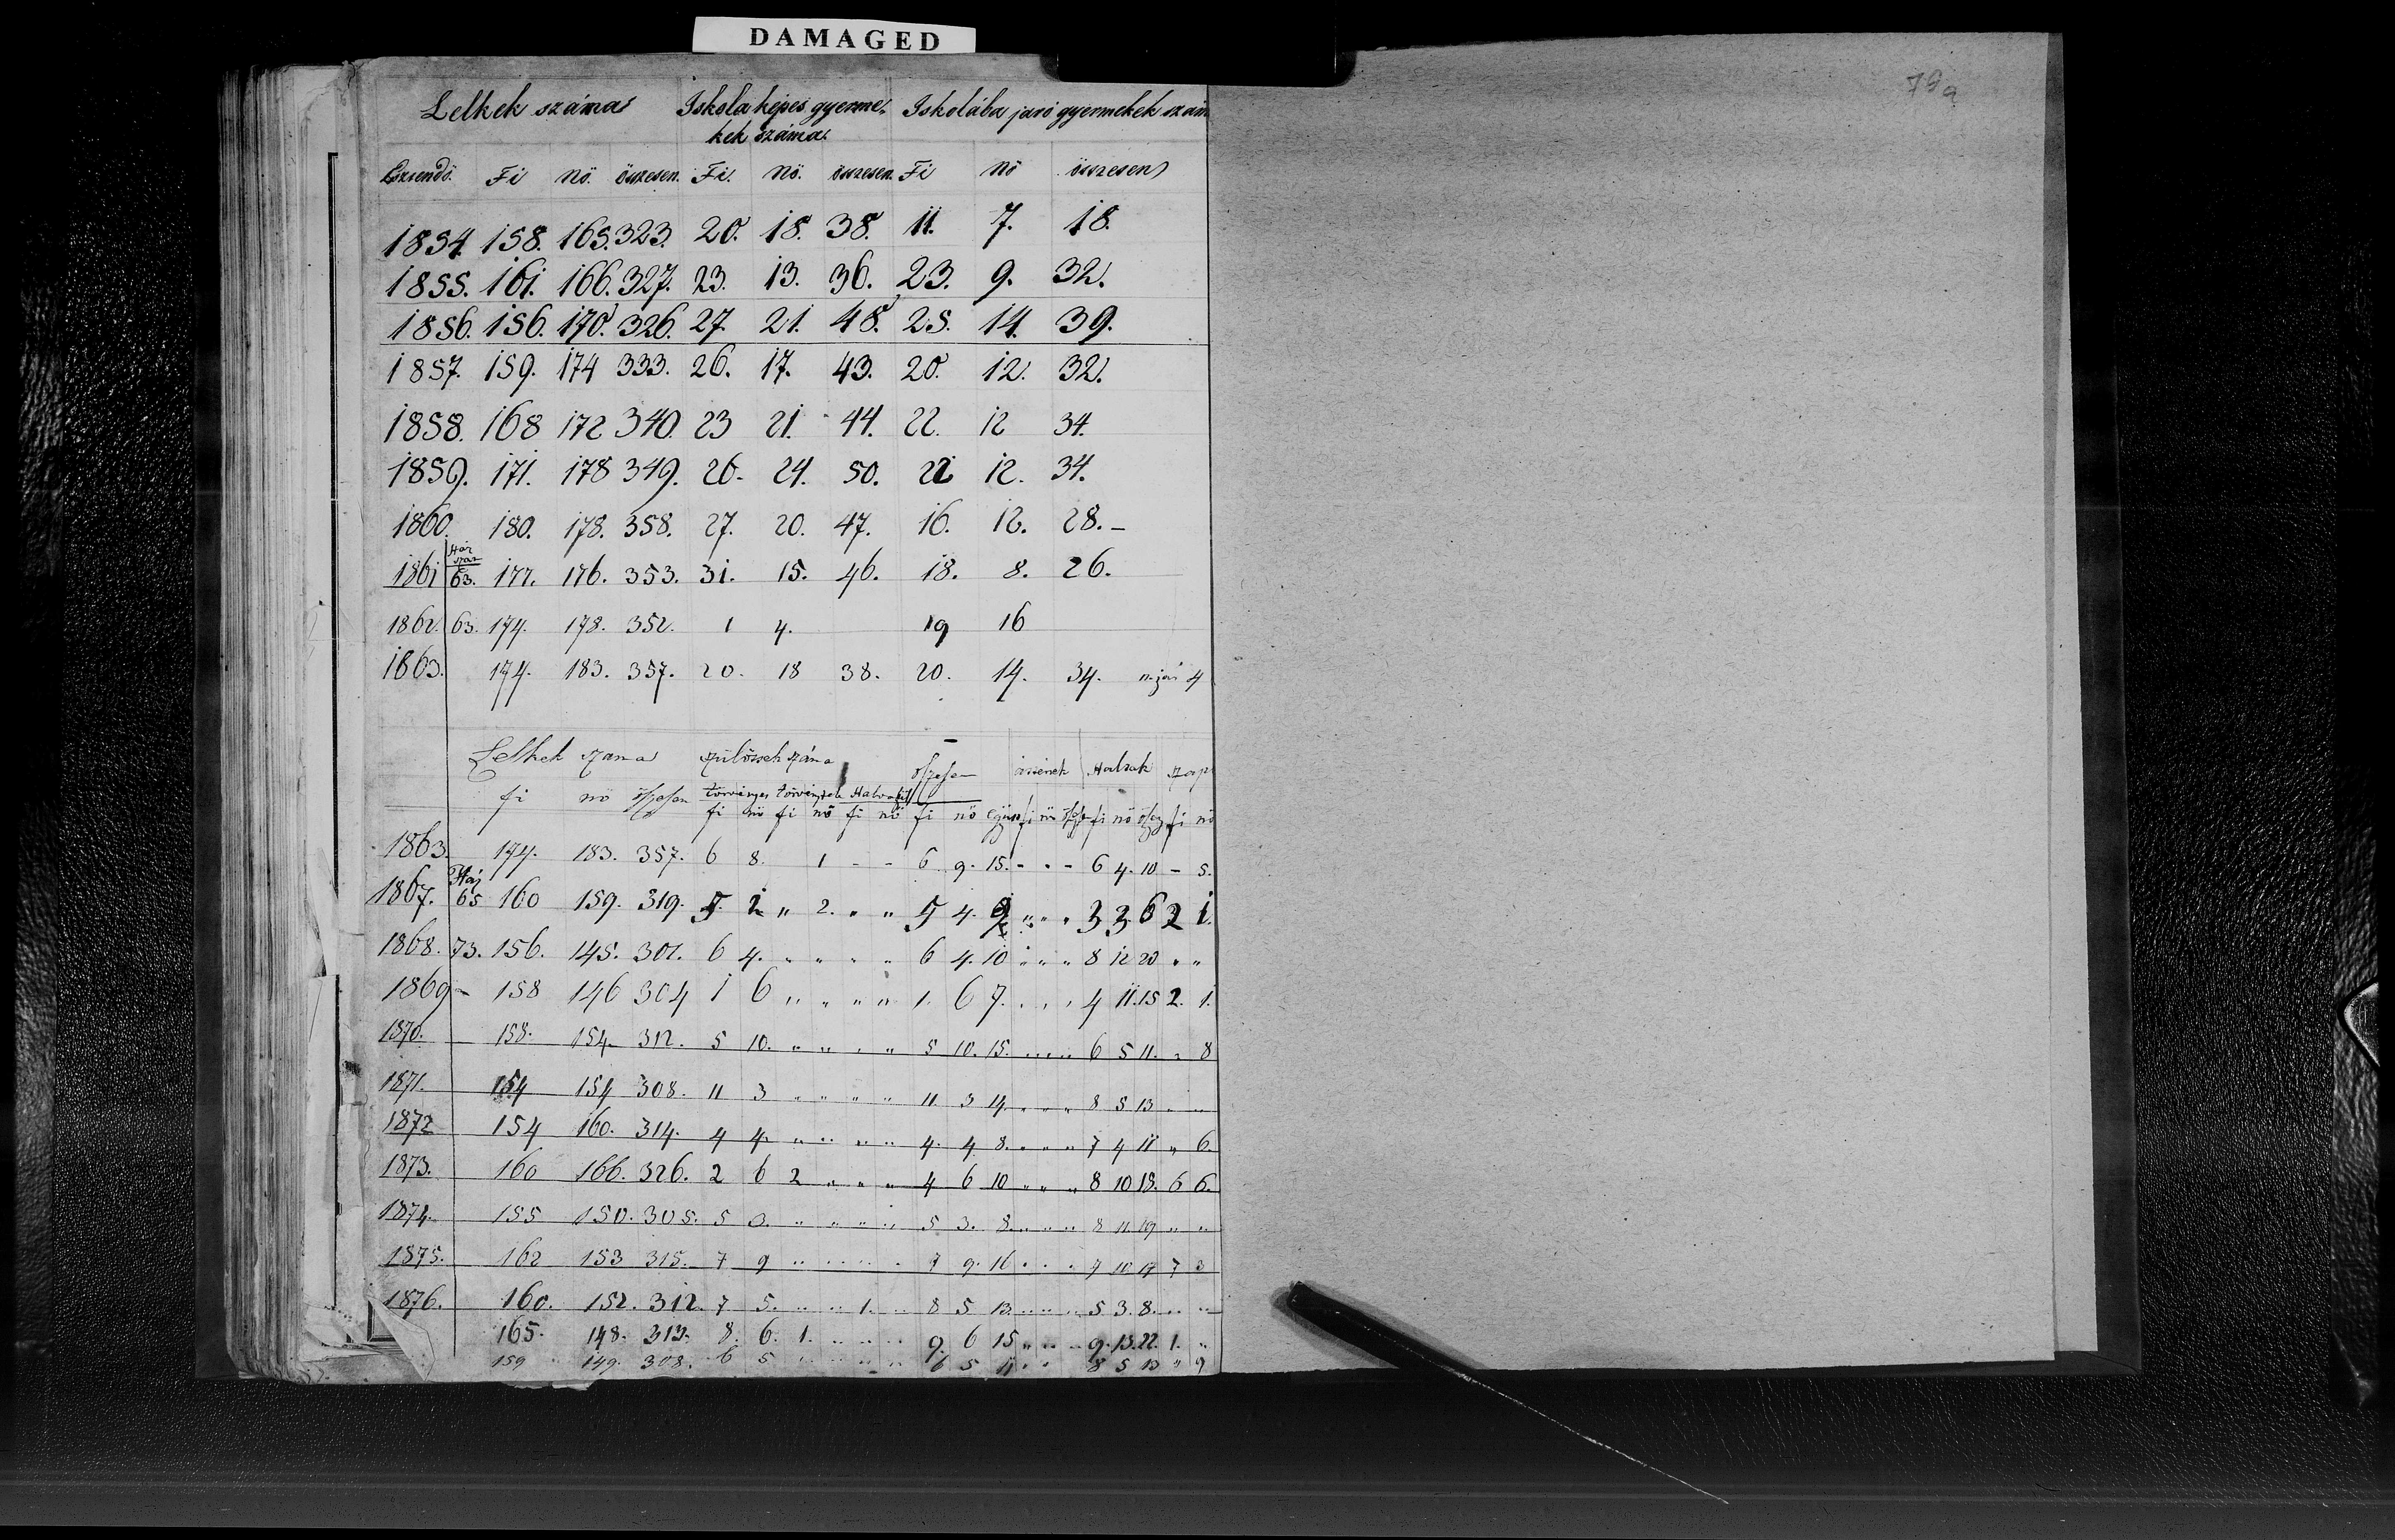 DAMAGED
79a
Lelkek száma Iskola képes gyerme- Iskolába járó gyermekek szám
kek száma
Eszendő. Fi nő. összesen. Fi. Nö. összesen. Fi Nö összesen
1854. 158. 165. 323. 20. 18. 38. 11. 7. 18.
1855. 161. 166. 327. 23. 13. 36. 23. 9. 32.
1856. 156. 170. 326. 27. 21. 48. 25. 14. 39.
1857. 159. 174 333. 26. 17. 43. 20. 12. 32.
1858. 168 172 340. 23 21. 44. 22. 12 34.
1859. 171. 178 349. 26. 24. 50. 22 12. 34.
1860. 180. 178. 358. 27. 20. 47. 16. 12. 28. -
Ház
szám
1861 63. 177. 176. 353. 31. 15. 46. 18. 8. 26.
1862. 63. 174. 178. 352. 1 4. 19 16
1863. 174. 183. 357. 20. 18 38. 20. 14. 34. n. jár 4
Lelkek száma öszesen Halvak
fi nö öszesen törvényes
fi nö fi nö fi nö fi nö fi nö fi nö fi nö
1863. 174. 183. 357. 6 8. 1 - - 6 9. 15. - - - 6 4. 10 - 5.
Ház
1867. 65 160 159. 319. 5. 2 " 2. " " 5 4. 9 " " " 3 3 6 2 1.
1868. 73. 156. 145. 301. 6 4. " " " " 6 4. 10 " " " 8 12 20 " "
1869 - 158 146 304 1 6 " " " " 1. 6 7. " " " 4 11. 15 2. 1.
1870. 158. 154. 312. 5 10. " " " " 5 10. 15. " " " 6 5 11. " 8
1871. 154 154 308. 11 3 " " " " 11 3 14. " " " 8 5 13 " "
1872 154 160. 314. 4 4. " " " " 4. 4 8. " " " 7 4 11 " 6.
1873. 160 166. 326. 2 6 2 " " " 4 6 10 " " " 8 10 18. 6 6.
1874. 155 150. 305. 5 3. " " " " 5 3. 8. " " " 8 11. 19 " "
1875. 162 153 315. 7 9 " " " " 7 9. 16 " " " 7 10 17 7 3
1876. 160. 152. 312. 7 5. " " 1. " 8 5 13. " " " 5 3. 8. " "
165. 148. 313. 8. 6. 1. " " " 9. 6 15 " " " 9. 13. 22. 1. "
159 149. 308. 6 5 " " " " 6 5 11 " " 8 5 13 " 9